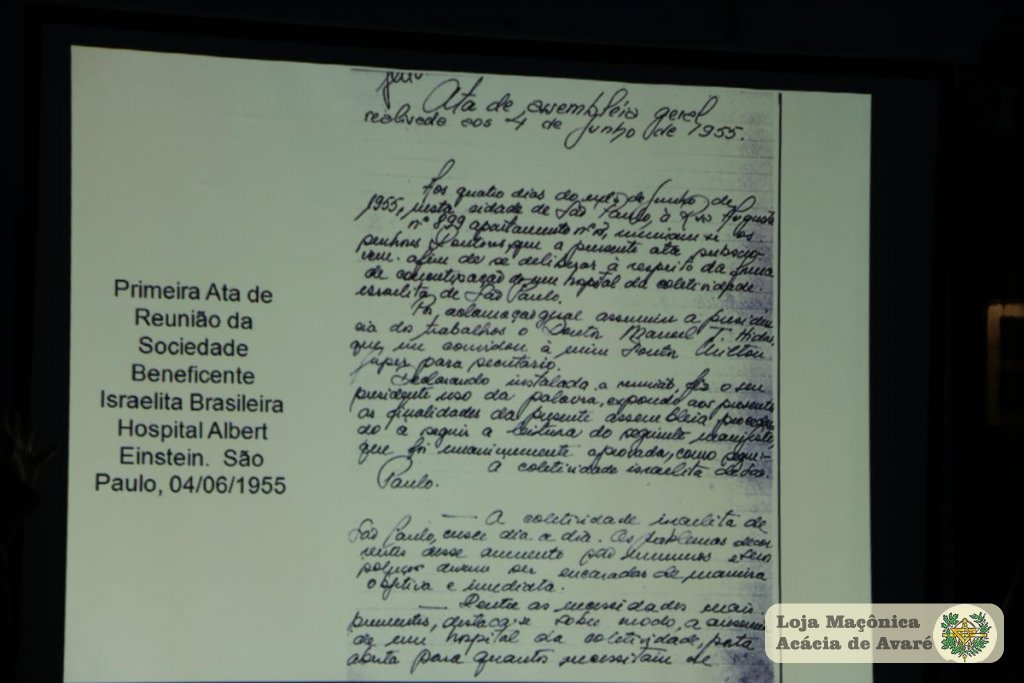 Primeira Ata de
Reunião da
Sociedade
Beneficente
Israelita Brasileira
Hospital Albert
Einstein. São
Paulo, 04/06/1955
Ata de assembléia geral
realizada aos 4 de Junho de 1955.
Aos quatro dias do mês de Junho de
1955, nesta cidade de São Paulo, à Rua Augusta
nº 899 apartamento nº reuniram-se os
senhores Doutores, que a presente ata subscre-
vem afim de se deliberar à respeito da
de concretização de um hospital da coletividade
israelita de São Paulo.
Por aclamação geral assumiu a presidên-
cia dos trabalhos o Doutor Manoel T. Hidal,
que convidou à mim Doutor
para secretário.
Declarando instalada a reunião, fez o seu
presidente uso da palavra, expondo aos presentes
as finalidades da presente assembleia proceden-
do à seguir a leitura do seguinte manifesto
que foi unanimemente aprovado, como segue-
A coletividade israelita de São
Paulo.
— A coletividade israelita de
São Paulo, cresce dia a dia. Os problemas decor
rentes desse aumento são inumeros e
devem ser encaradas de maneira
objetiva e imediata.
— Dentre as necessidades mais
prementes, destaca-se sobre modo, a ausencia
de um hospital da coletividade, porta
aberta para quantos necessitam de
Loja Maçônica
Acácia de Avaré